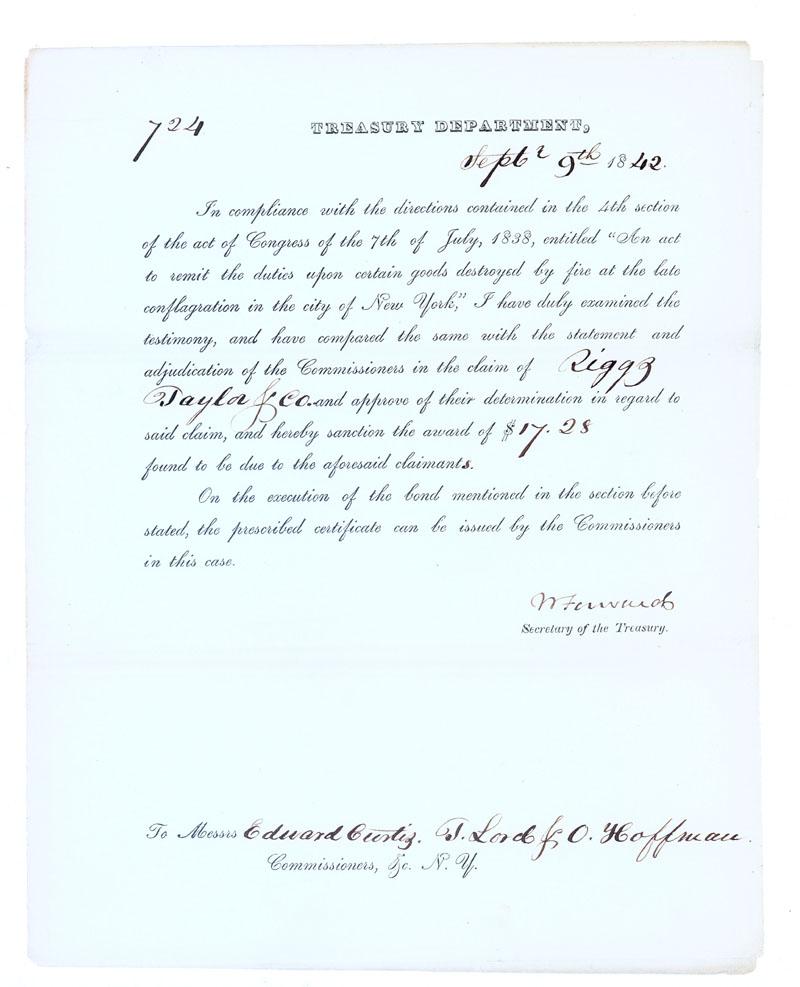 724
TREASURY DEPARTMENT,
Septr 9th 1842.
In compliance with the directions contained in the 4th section
of the act of Congress of the 7th of July, 1838, entitled "An act
to remit the duties upon certain goods destroyed by fire at the late
conflagration in the city of New York," I have duly examined the
testimony, and have compared the same with the statement and
adjudication of the Commissioners in the claim of Riggs
Taylor & Co. and approve of their determination in regard to
said claim, and hereby sanction the award of $17.28
found to be due to the aforesaid claimants.
On the execution of the bond mentioned in the section before
stated, the prescribed certificate can be issued by the Commissioners
in this case.
W Forward
Secretary of the Treasury.
To Messrs Edward Curtis. T. Lord & O. Hoffman.
Commissioners, &c. N. Y.